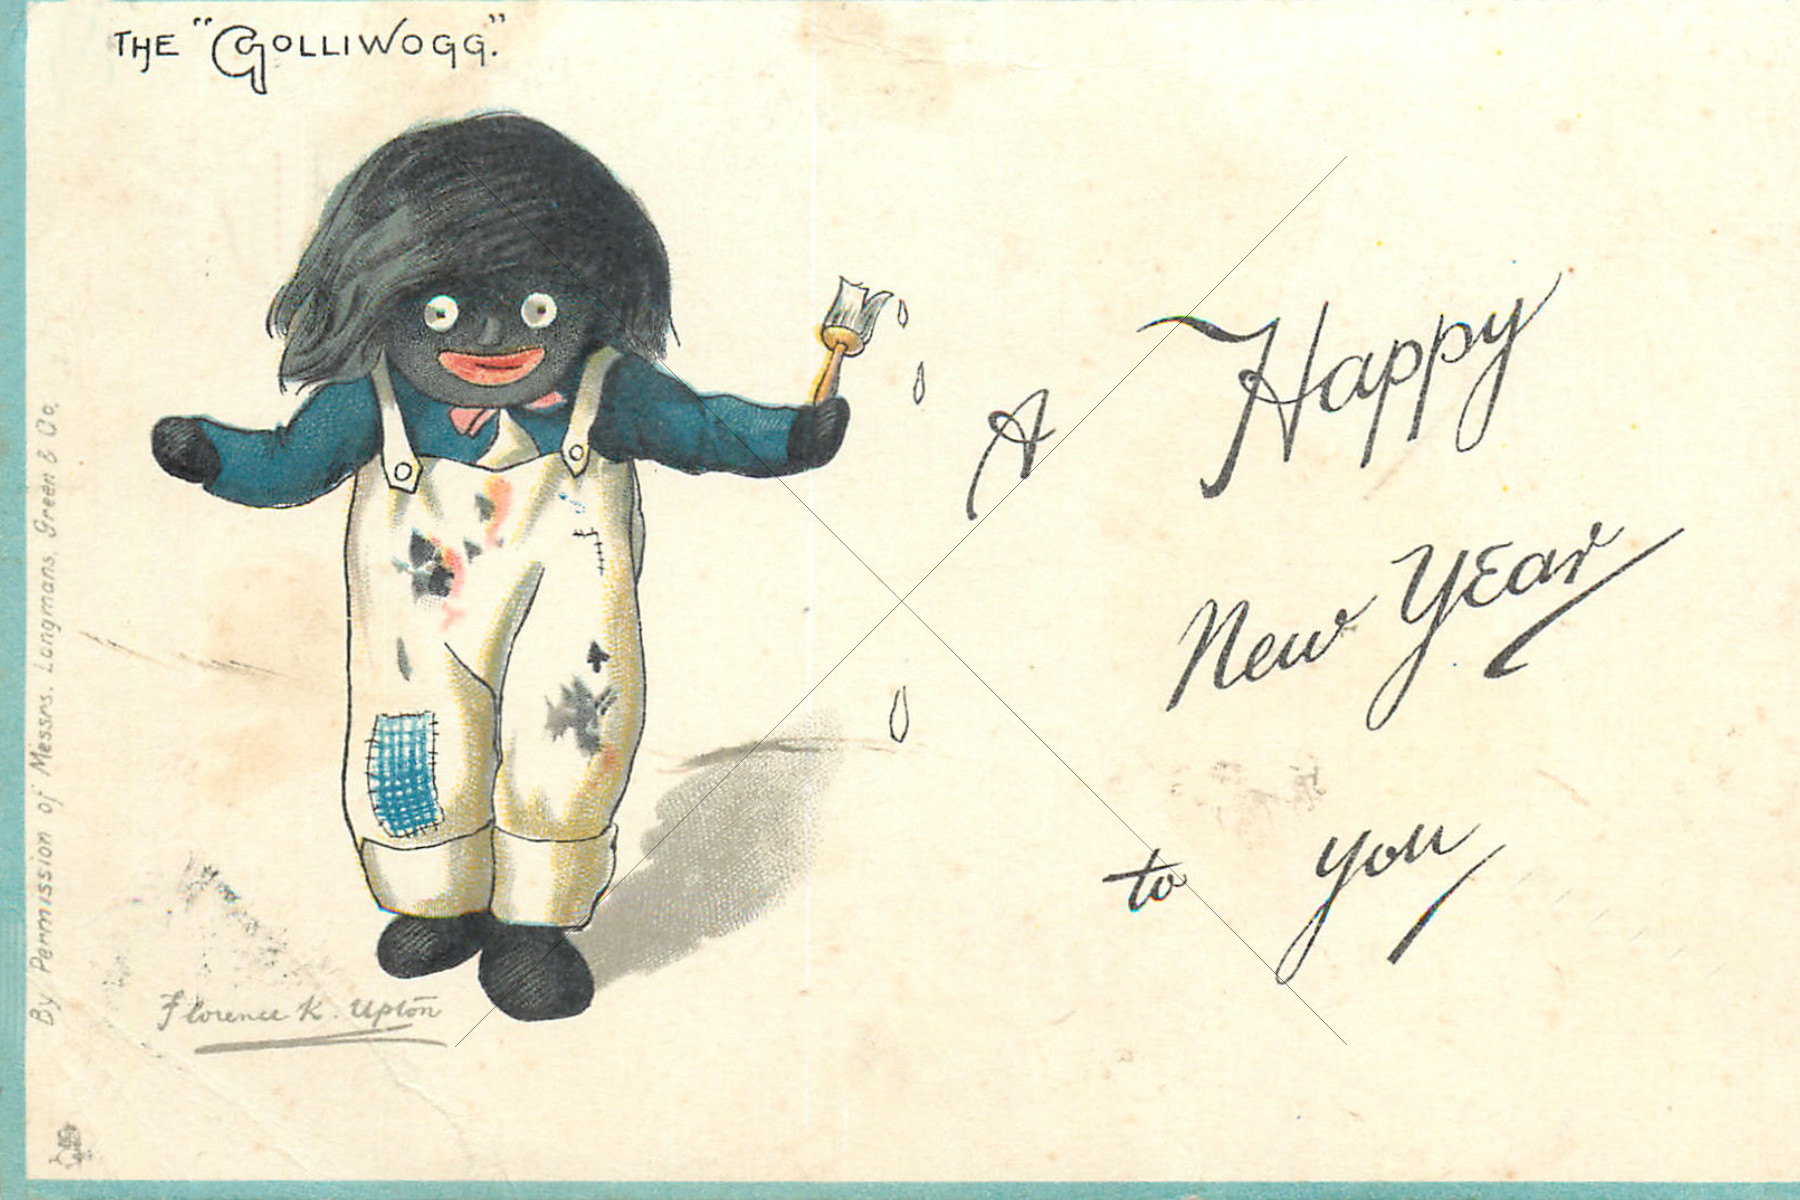 THE "GOLLIWOGG."
A Happy
New Year
to you
By Permission of Messrs. Longmans, Green & Co.
Florence K. Upton